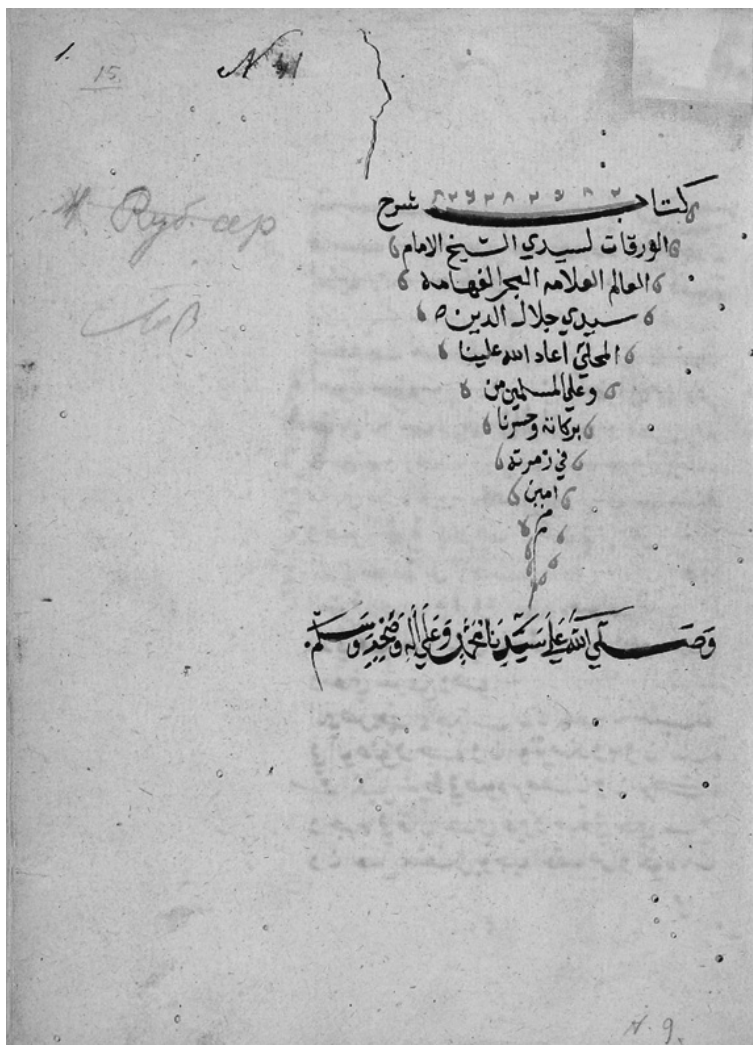 1.
15.
N 41
كتاب شرح
الورقات لسيدي الشيخ الامام
العالم العلامه البحر الفهامه
سيدي جلال الدين
المحلي اعاد الله علينا
وعلي المسلمين من
بركاته وحشرنا
في زمرته
امين
م
وَصَلَّي اللهُ عَلَي سَيِّدِنَا مُحَمَّدٍ وَعَلَي اٰلِهِ وَصَحْبِهِ وَسَلَّم.
N. 9.